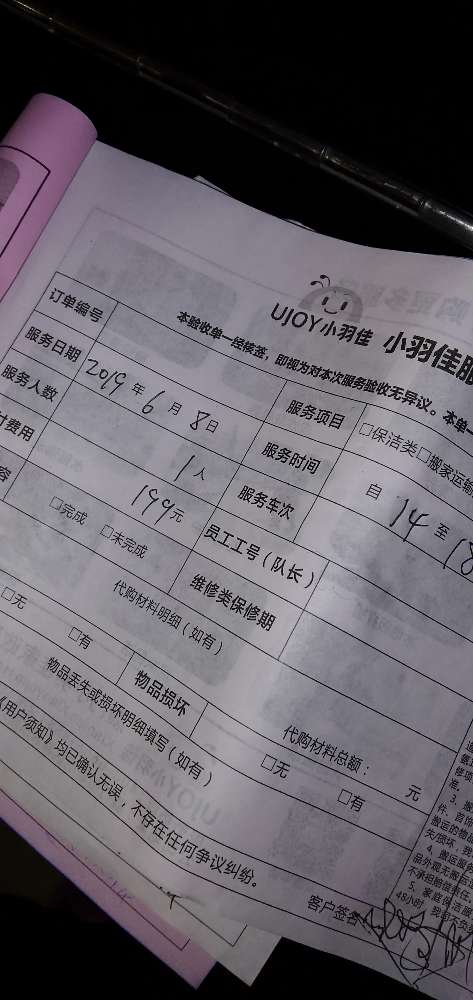 UJOY小羽佳 小羽佳服
本验收单一经修签,即视为对本次服务验收无异议。本单一
订单编号 服务项目 □保洁类□搬家运输
服务日期 2019年6月8日 服务时间 自14至18
服务人数 1人 服务车次
付费用 199元 员工工号(队长)
容 □完成 □未完成 维修类保修期
代购材料明细(如有) 代购材料总额: 元
□无 □有 物品损坏 □无 □有
物品丢失或损坏明细填写(如有)
《用户须知》均已确认无误,不存在任何争议纠纷。
客户签名
准。
3、
件,首饰
搬运的物
失/损坏,我
4、搬运服务
品外观无
不承担赔偿责任。
5、家庭保洁服
48小时